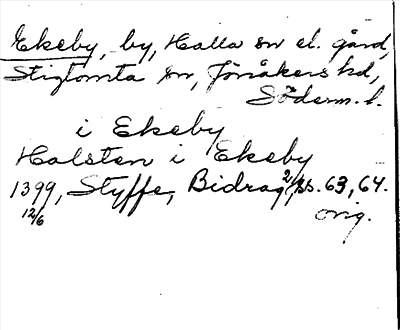 Ekeby, by, Halla sn el. gård,
Stigtomta sn, Jönåkers hd,
Söderm. l.
i Ekeby
Halsten i Ekeby
1399, Styffe, Bidrag 2, ss. 63, 64.
12/6 orig.